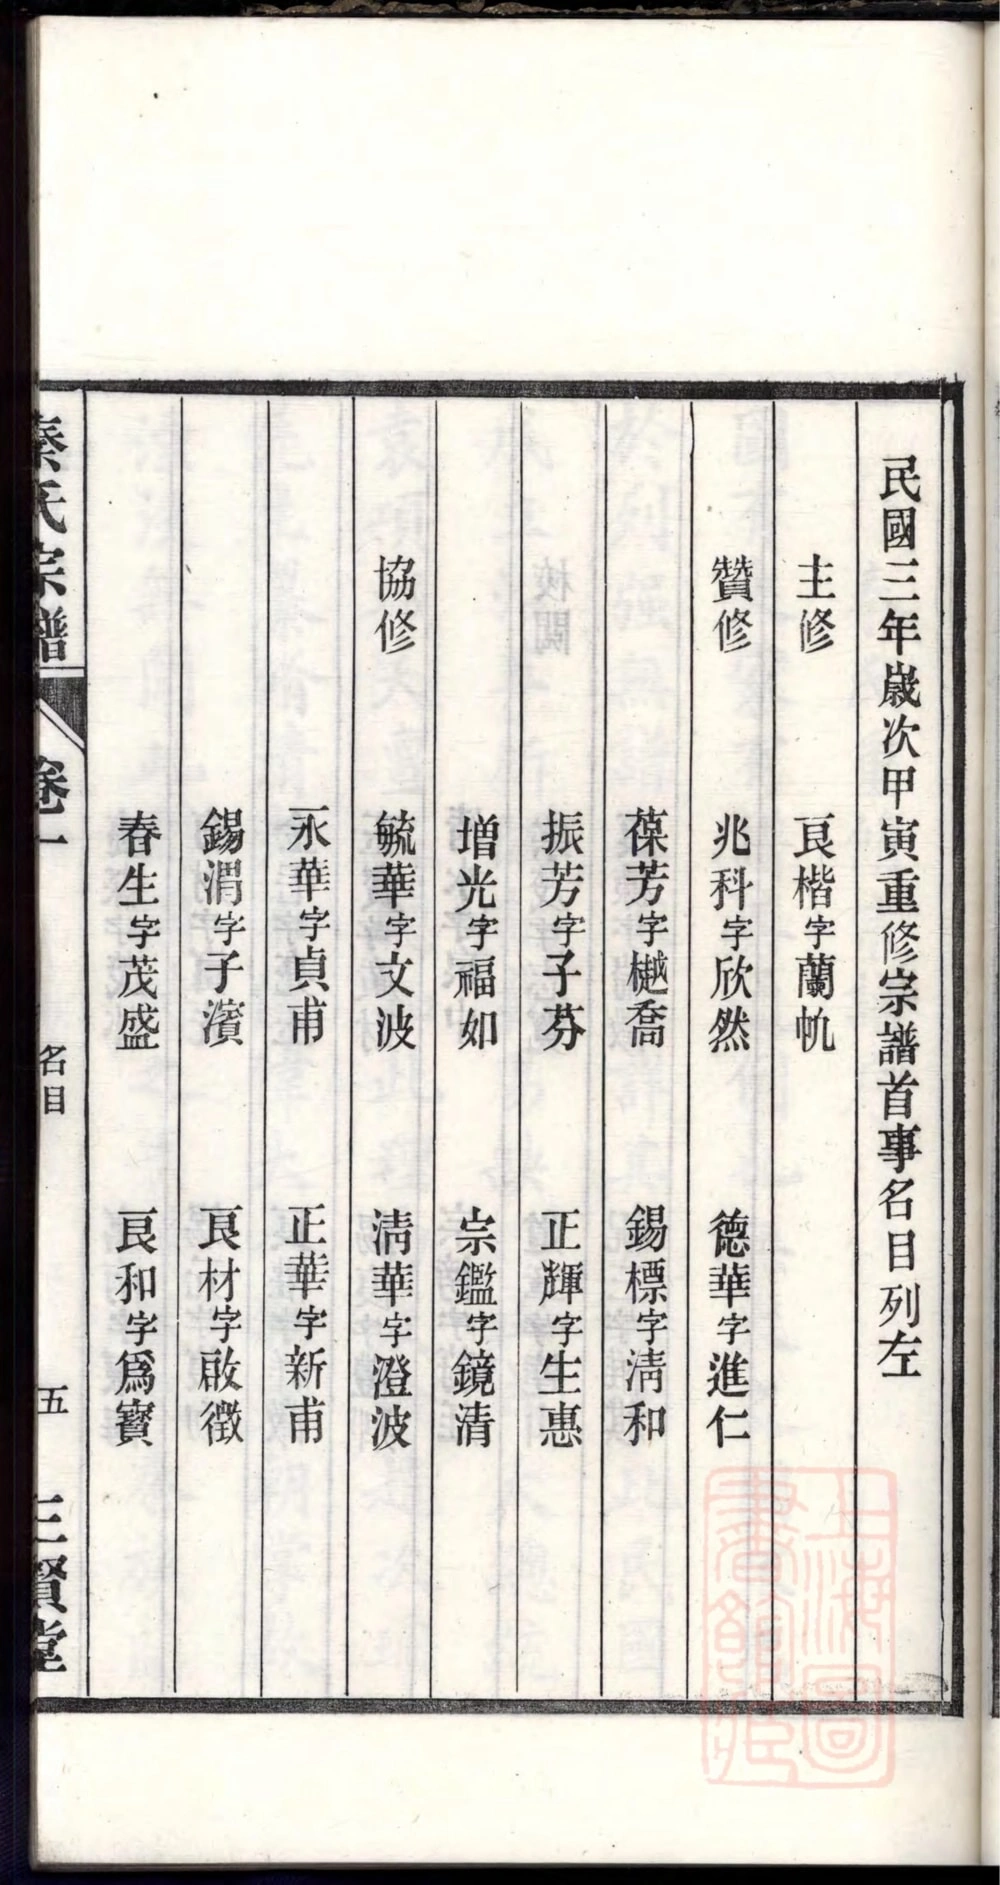 民國三年歲次甲寅重修宗譜首事名目列左
主修 良楷字蘭帆
贊修 兆科字欣然 德華字進仁
葆芳字樾喬 錫標字淸和
振芳字子芬 正輝字生惠
增光字福如 宗鑑字鏡清
協修 毓華字文波 淸華字澄波
永華字貞甫 正華字新甫
錫渭字子濱 良材字啟徵
春生字茂盛 良和字爲寶
秦氏宗譜 卷一 名目 五 三賢堂
上海圖書館藏